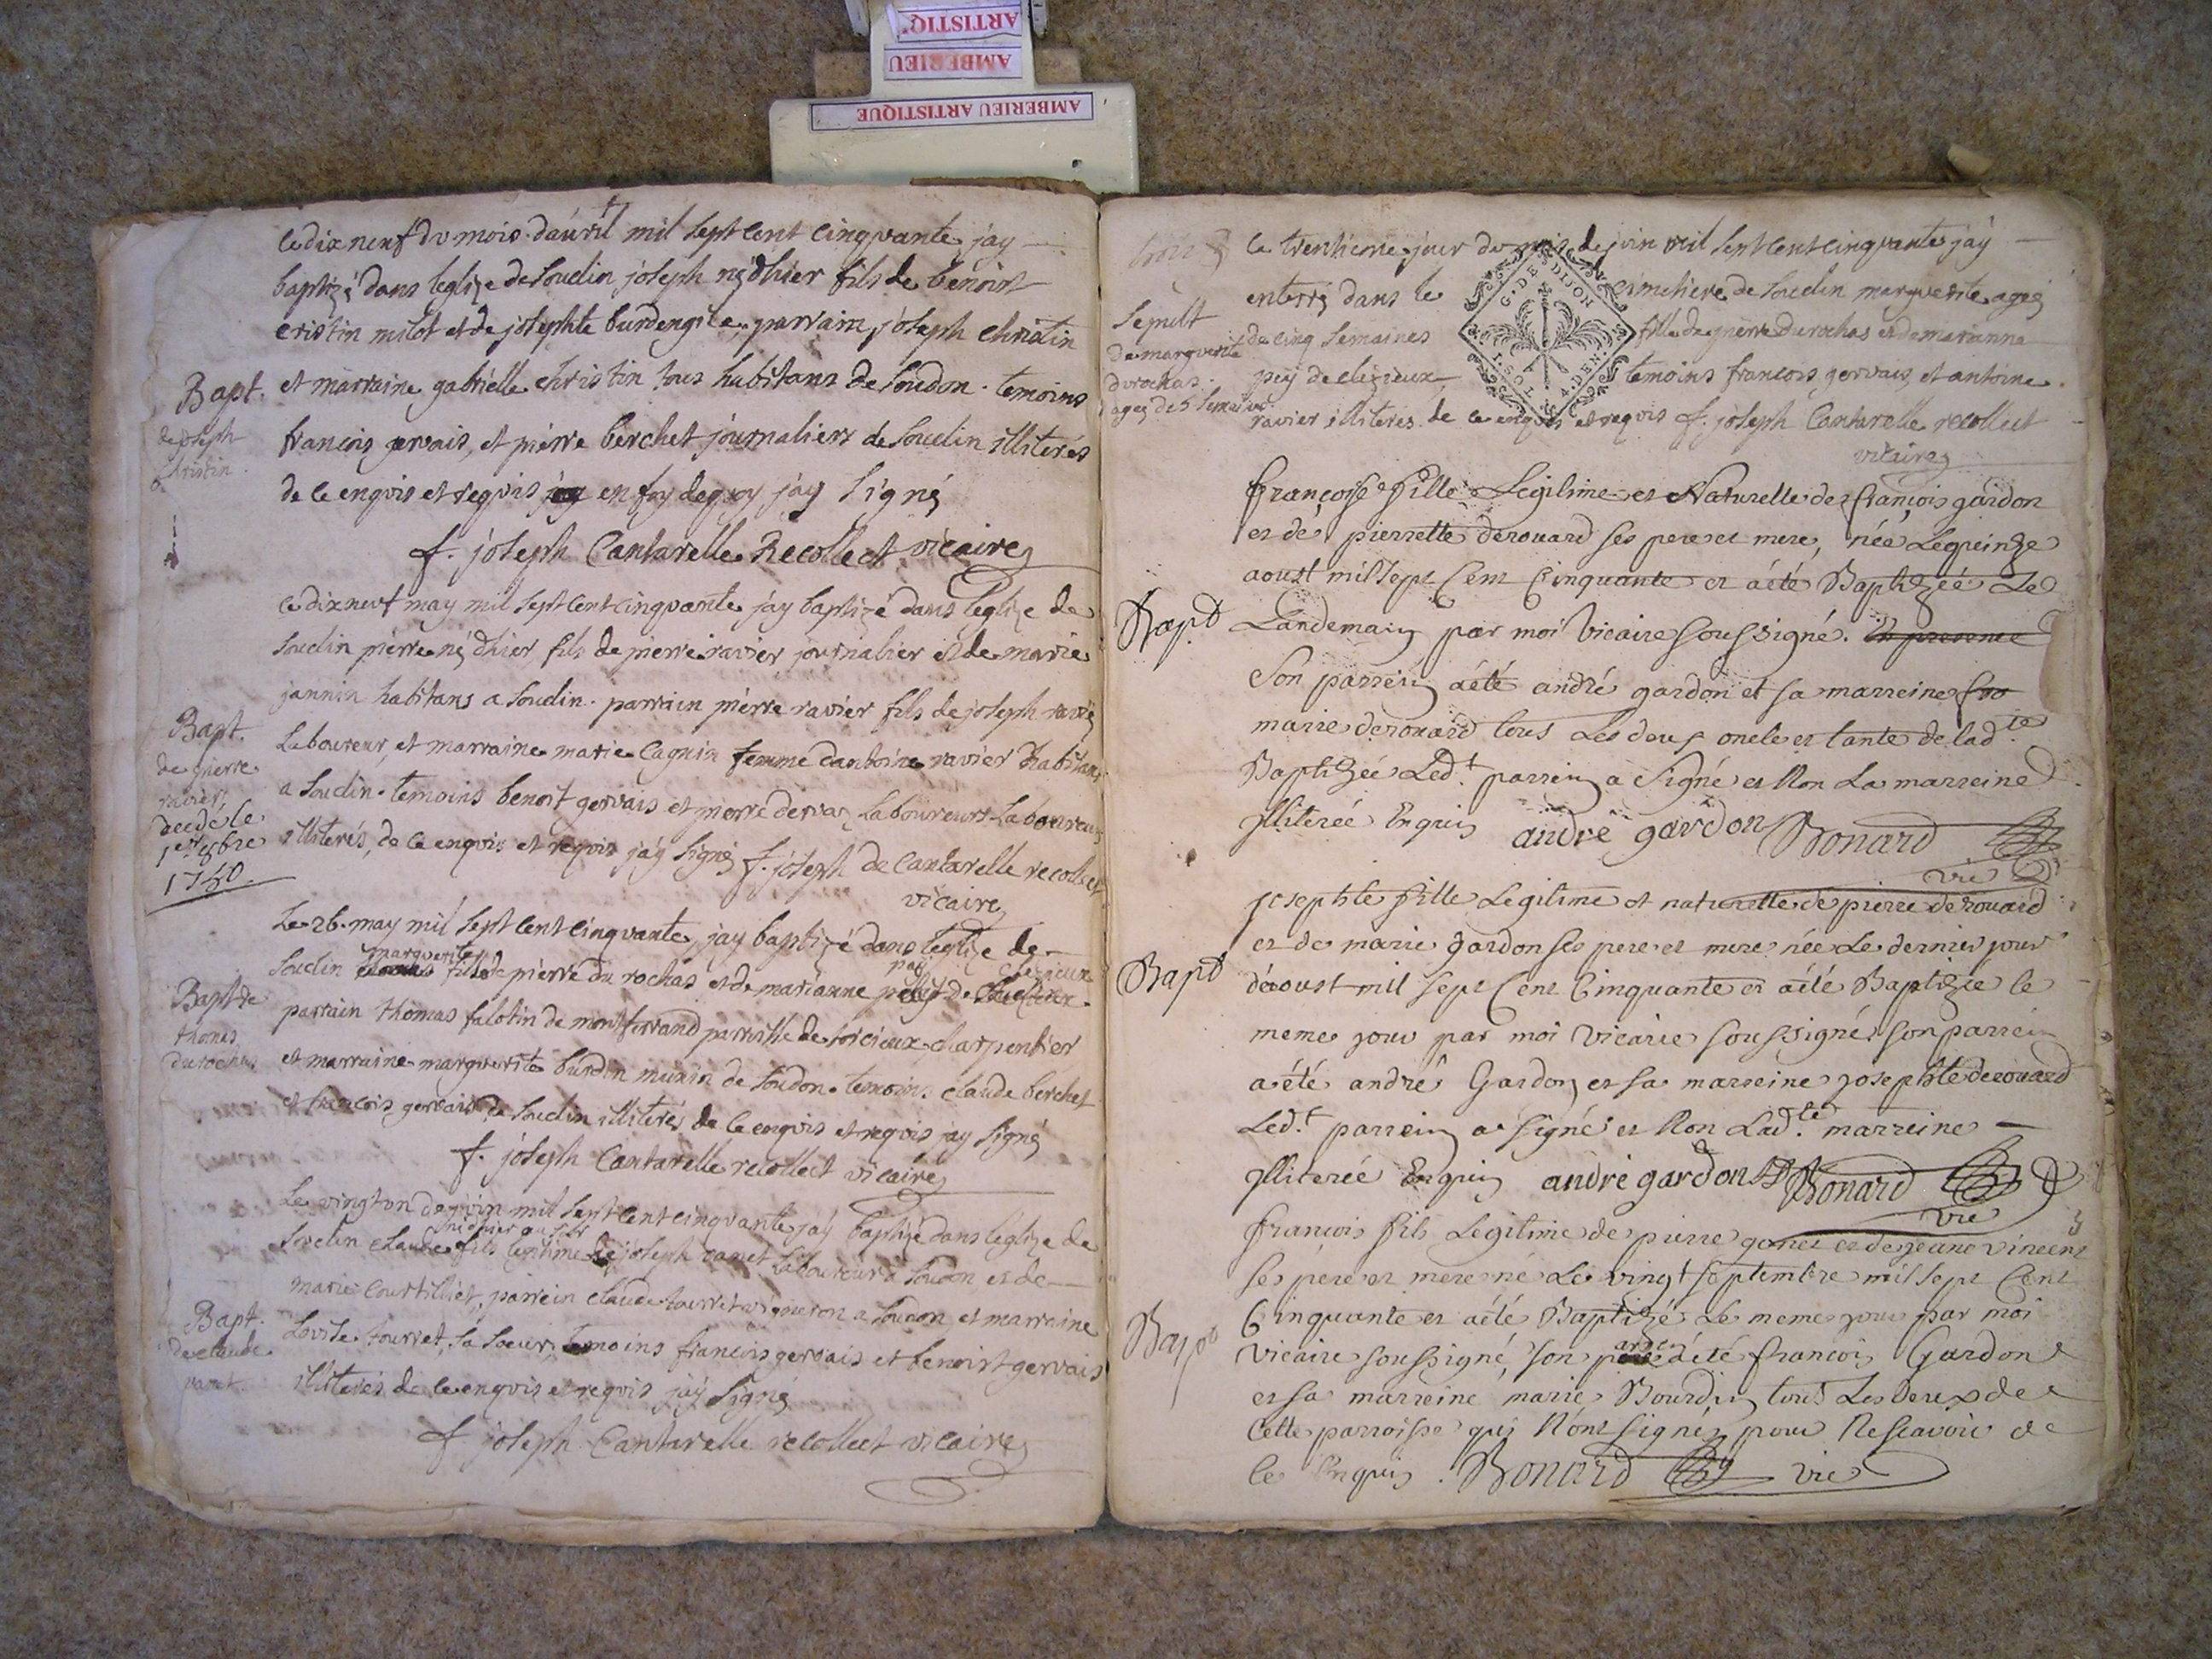 ARTISTIQ
AMBERIEU
AMBERIEU ARTISTIQUE
le dix neuf du mois d'avril mil sept cent cinqvante jay
baptizé dans leglize de Souclin joseph né dhier fils de benoist
cristin milot et de josephte burdengite, parrain joseph christin
et marraine gabrielle christin tous habitans de Soudon. temoins
francois gervais, et pierre berchet journaliers de Souclin illiterés
de ce enqvis et reqvis jay en foy deqvoy jay signé
f. joseph Cantarelle Recollect vicaire
Bapt.
de joseph
Christin
le dix neuf may mil sept cent cinqvante jay baptizé dans leglize de
Souclin pierre né dhier, fils de pierre ravier journalier et de marie
jannin habitans a Souclin. parrain pierre ravier fils de joseph ravier
Laboureur, et marraine marie Cagnin femme dantoine ravier habitans
a Souclin. temoins benoit gervais et pierre dervas Laboureurs Laboureurs
illiterés, de ce enqvis et reqvis jay signé f. joseph de Cantarelle recollect
vicaire
Bapt.
de pierre
ravier
decedé le
1er 8bre
1750.
Le 26. may mil sept cent cinqvante, jay baptizé dans leglize de
marguerite
Souclin fille de pierre du rochas et de marianne pey de clezieux
parrain thomas falotin de montferrand parroisse de torcieux charpentier
et marraine margverite burdin munin de Soudon. temoins claude berchet
et francois gervais de Souclin illiterés de ce enqvis et reqvis jay signé
f. joseph Cantarelle recollect vicaire
Bapt de
thomas
durochas
Le vingt un de juin mil sept cent cinqvante jay baptizé dans leglize de
Souclin claude fils legitime de joseph vanet Laboureur a Soudon et de
marie Courtilliet, parrein claude tourret vigneron a Soudon et marraine
Lovise tourret, sa soeur, temoins francois gervais et benoist gervais
illiterés de ce enqvis et reqvis jay signé
f. joseph Cantarelle recollect vicaire
Bapt.
de claude
vanet
le trentieme jour du mois de juin mil sept cent cinqvante jay
enterré dans le cimetiere de Souclin margverite ageé
de cinq semaines fille de pierre durochas et de marianne
pey de clezieux, temoins francois gervais et antoine
ravier illiteres de ce enqvis et reqvis f. joseph Cantarelle recollect
vicaire
Sepult
de margverite
durochas
ageé de 5 semaines
G. DE DIJON
françoise fille Legitime et Naturelle de françois gardon
et de pierrette derouard ses pere et mere, née Le quinze
aoust mil sept Cent Cinquante et a été Baptizée Le
Landemain par moi Vicaire soussigné. En presence
Son parrein a été andré gardon et sa marreine
marie derouard tous Les deux oncle et tante de ladte
Baptizée Ledt. parrein a Signé et Non La marreine
illiterée Enquis andré gardon Bonard
vic
Bapt
josephte fille Legitime et naturelle de pierre derouard
et de marie gardon ses pere et mere née Le dernier jour
d'aoust mil sept Cent Cinquante et a été Baptizée le
meme jour par moi Vicaire soussigné son parrein
a été andré Gardon et sa marreine josephte derouard
Ledt. parrein a signé et Non Ladte. marreine
illiterée Enquis andré gardon Bonard
vic
Bapt
françois fils Legitime de pierre et de jeanne Vincent
ses pere et mere né Le vingt septembre mil sept Cent
Cinquante et a été Baptizé Le meme jour par moi
Vicaire soussigné, son parrein a été francois Gardon
et sa marreine marie Bourdin tous Les deux de
Cette parroisse qui N'ont signé pour Ne scavoir de
Ce Enquis. Bonard vic
Bapt